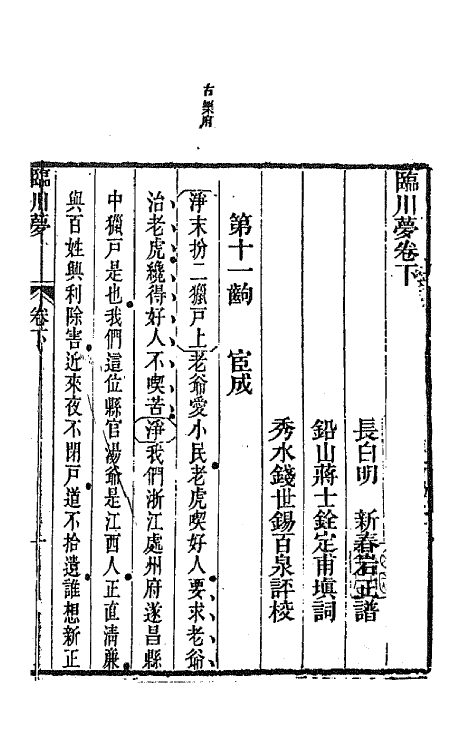 古樂府
臨川夢卷下
長白明　新春岩正譜
鉛山蔣士銓定甫塡詞
秀水錢世錫百泉評校
第十一齣　宦成
淨末扮二獵戶上老爺愛小民老虎喫好人要求老爺
治老虎纔得好人不喫苦淨我們浙江處州府遂昌縣
中獵戶是也我們這位縣官湯爺是江西人正直清廉
與百姓興利除害近來夜不閉戶道不拾遺誰想新正
臨川夢
卷下
一